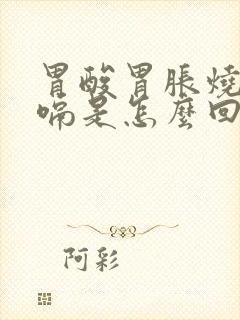 胃酸胃脹燒
嗝是怎麼回
阿彩